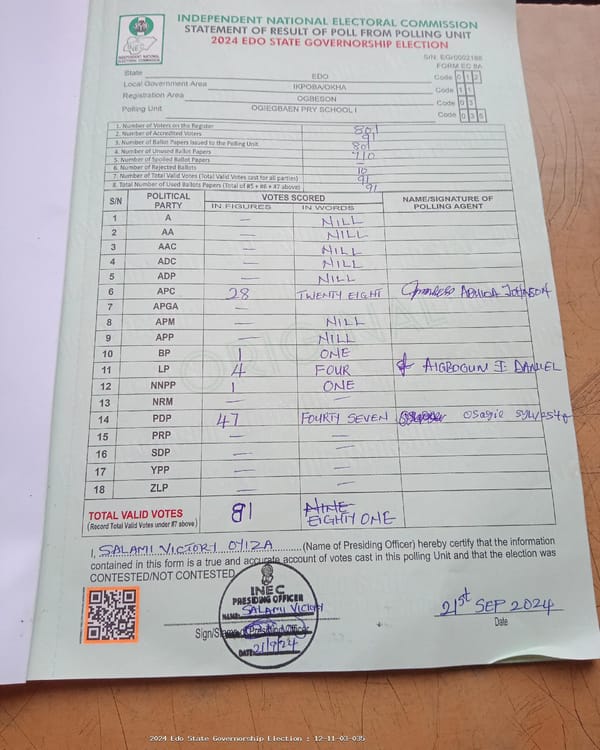 INDEPENDENT NATIONAL ELECTORAL COMMISSION
STATEMENT OF RESULT OF POLL FROM POLLING UNIT
2024 EDO STATE GOVERNORSHIP ELECTION
INEC
INDEPENDENT NATIONAL ELECTORAL COMMISSION
S/N: EG/0002188
FORM EC 8A
State EDO Code 1 2
Local Government Area IKPOBA/OKHA Code 1 1
Registration Area OGBESON Code 0 3
Polling Unit OGIEGBAEN PRY SCHOOL I Code 0 3 5
1. Number of Voters on the Register 801
2. Number of Accredited Voters 91
3. Number of Ballot Papers Issued to the Polling Unit 801
4. Number of Unused Ballot Papers 710
5. Number of Spoiled Ballot Papers —
6. Number of Rejected Ballots 10
7. Number of Total Valid Votes (Total Valid Votes cast for all parties)
8. Total Number of Used Ballots Papers (Total of #5 + #6 + #7 above) 91
S/N POLITICAL PARTY VOTES SCORED NAME/SIGNATURE OF POLLING AGENT
IN FIGURES IN WORDS
1 A — NILL
2 AA — NILL
3 AAC — NILL
4 ADC — NILL
5 ADP — NILL
6 APC 28 TWENTY EIGHT JOHNSON
7 APGA —
8 APM — NILL
9 APP — NILL
10 BP 1 ONE
11 LP 4 FOUR AIGBOGUN I. DANIEL
12 NNPP 1 ONE
13 NRM — —
14 PDP 47 FOURTY SEVEN osagie sylvester
15 PRP — —
16 SDP — —
17 YPP — —
18 ZLP — —
TOTAL VALID VOTES 81 NINE
(Record Total Valid Votes under #7 above) EIGHTY ONE
I, SALAMI VICTORY OYIZA (Name of Presiding Officer) hereby certify that the information
contained in this form is a true and accurate account of votes cast in this polling Unit and that the election was
CONTESTED/NOT CONTESTED
INEC
PRESIDING OFFICER
NAME: SALAMI VICTORY
DATE: 21/9/24
21st SEP 2024
Date
ORIGINAL
2024 Edo State Governorship Election : 12-11-03-035